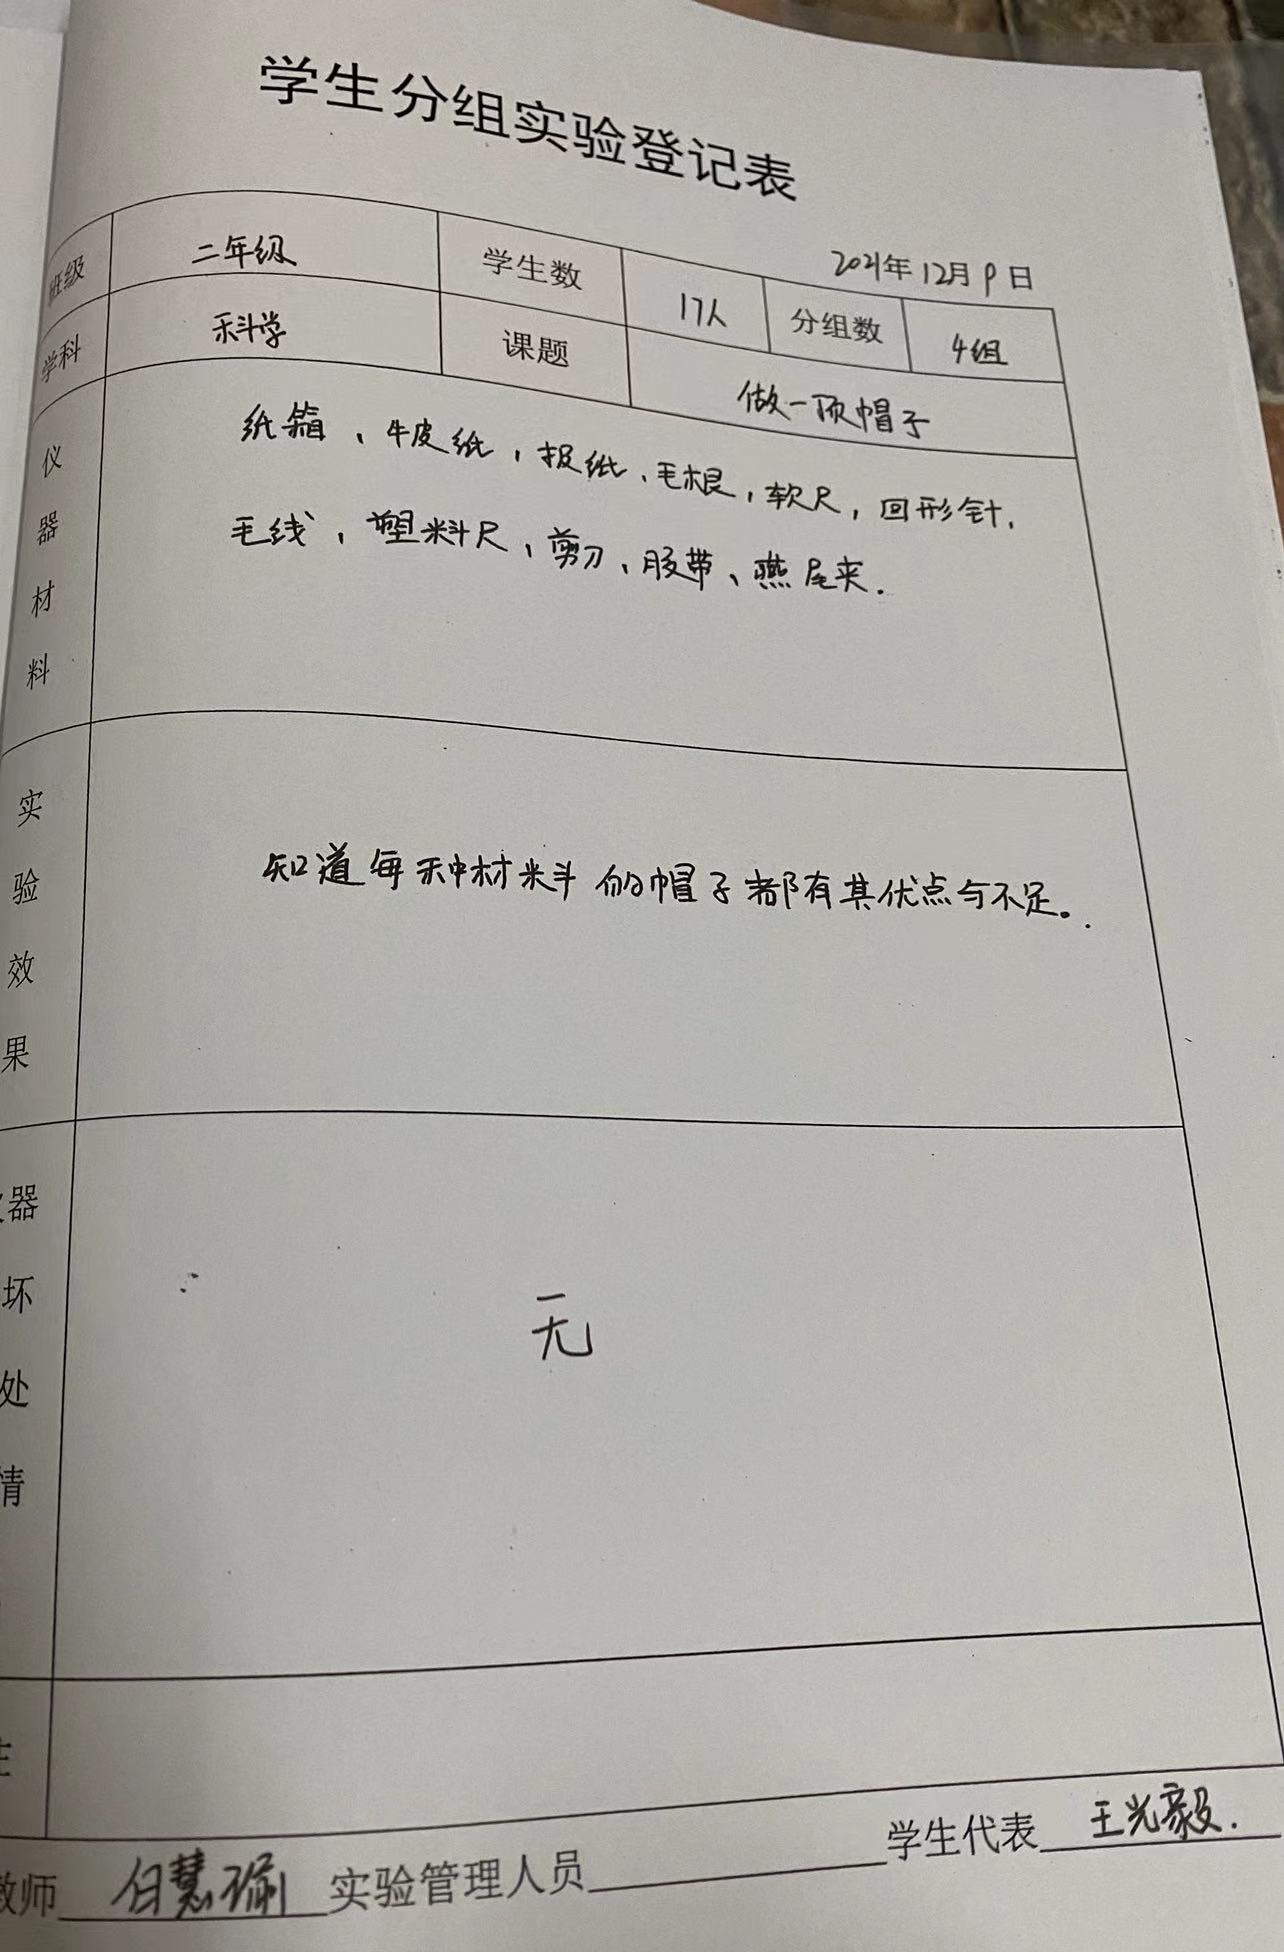 学生分组实验登记表
2021年12月9日
班级 二年级 学生数 17人 分组数 4组
学科 科学 课题 做一顶帽子
仪器材料
纸箱、牛皮纸，报纸、毛根，软尺，回形针，
毛线，塑料尺，剪刀、胶带、燕尾夹.
实验效果
知道每种材料的帽子都有其优点与不足。
器
坏
处
情
无
教师 白慧瑜 实验管理人员 学生代表 王光毅.